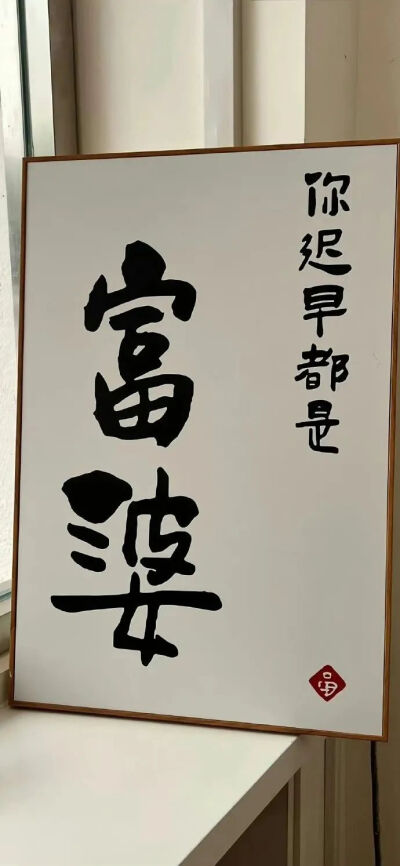 你迟早都是
富婆
富